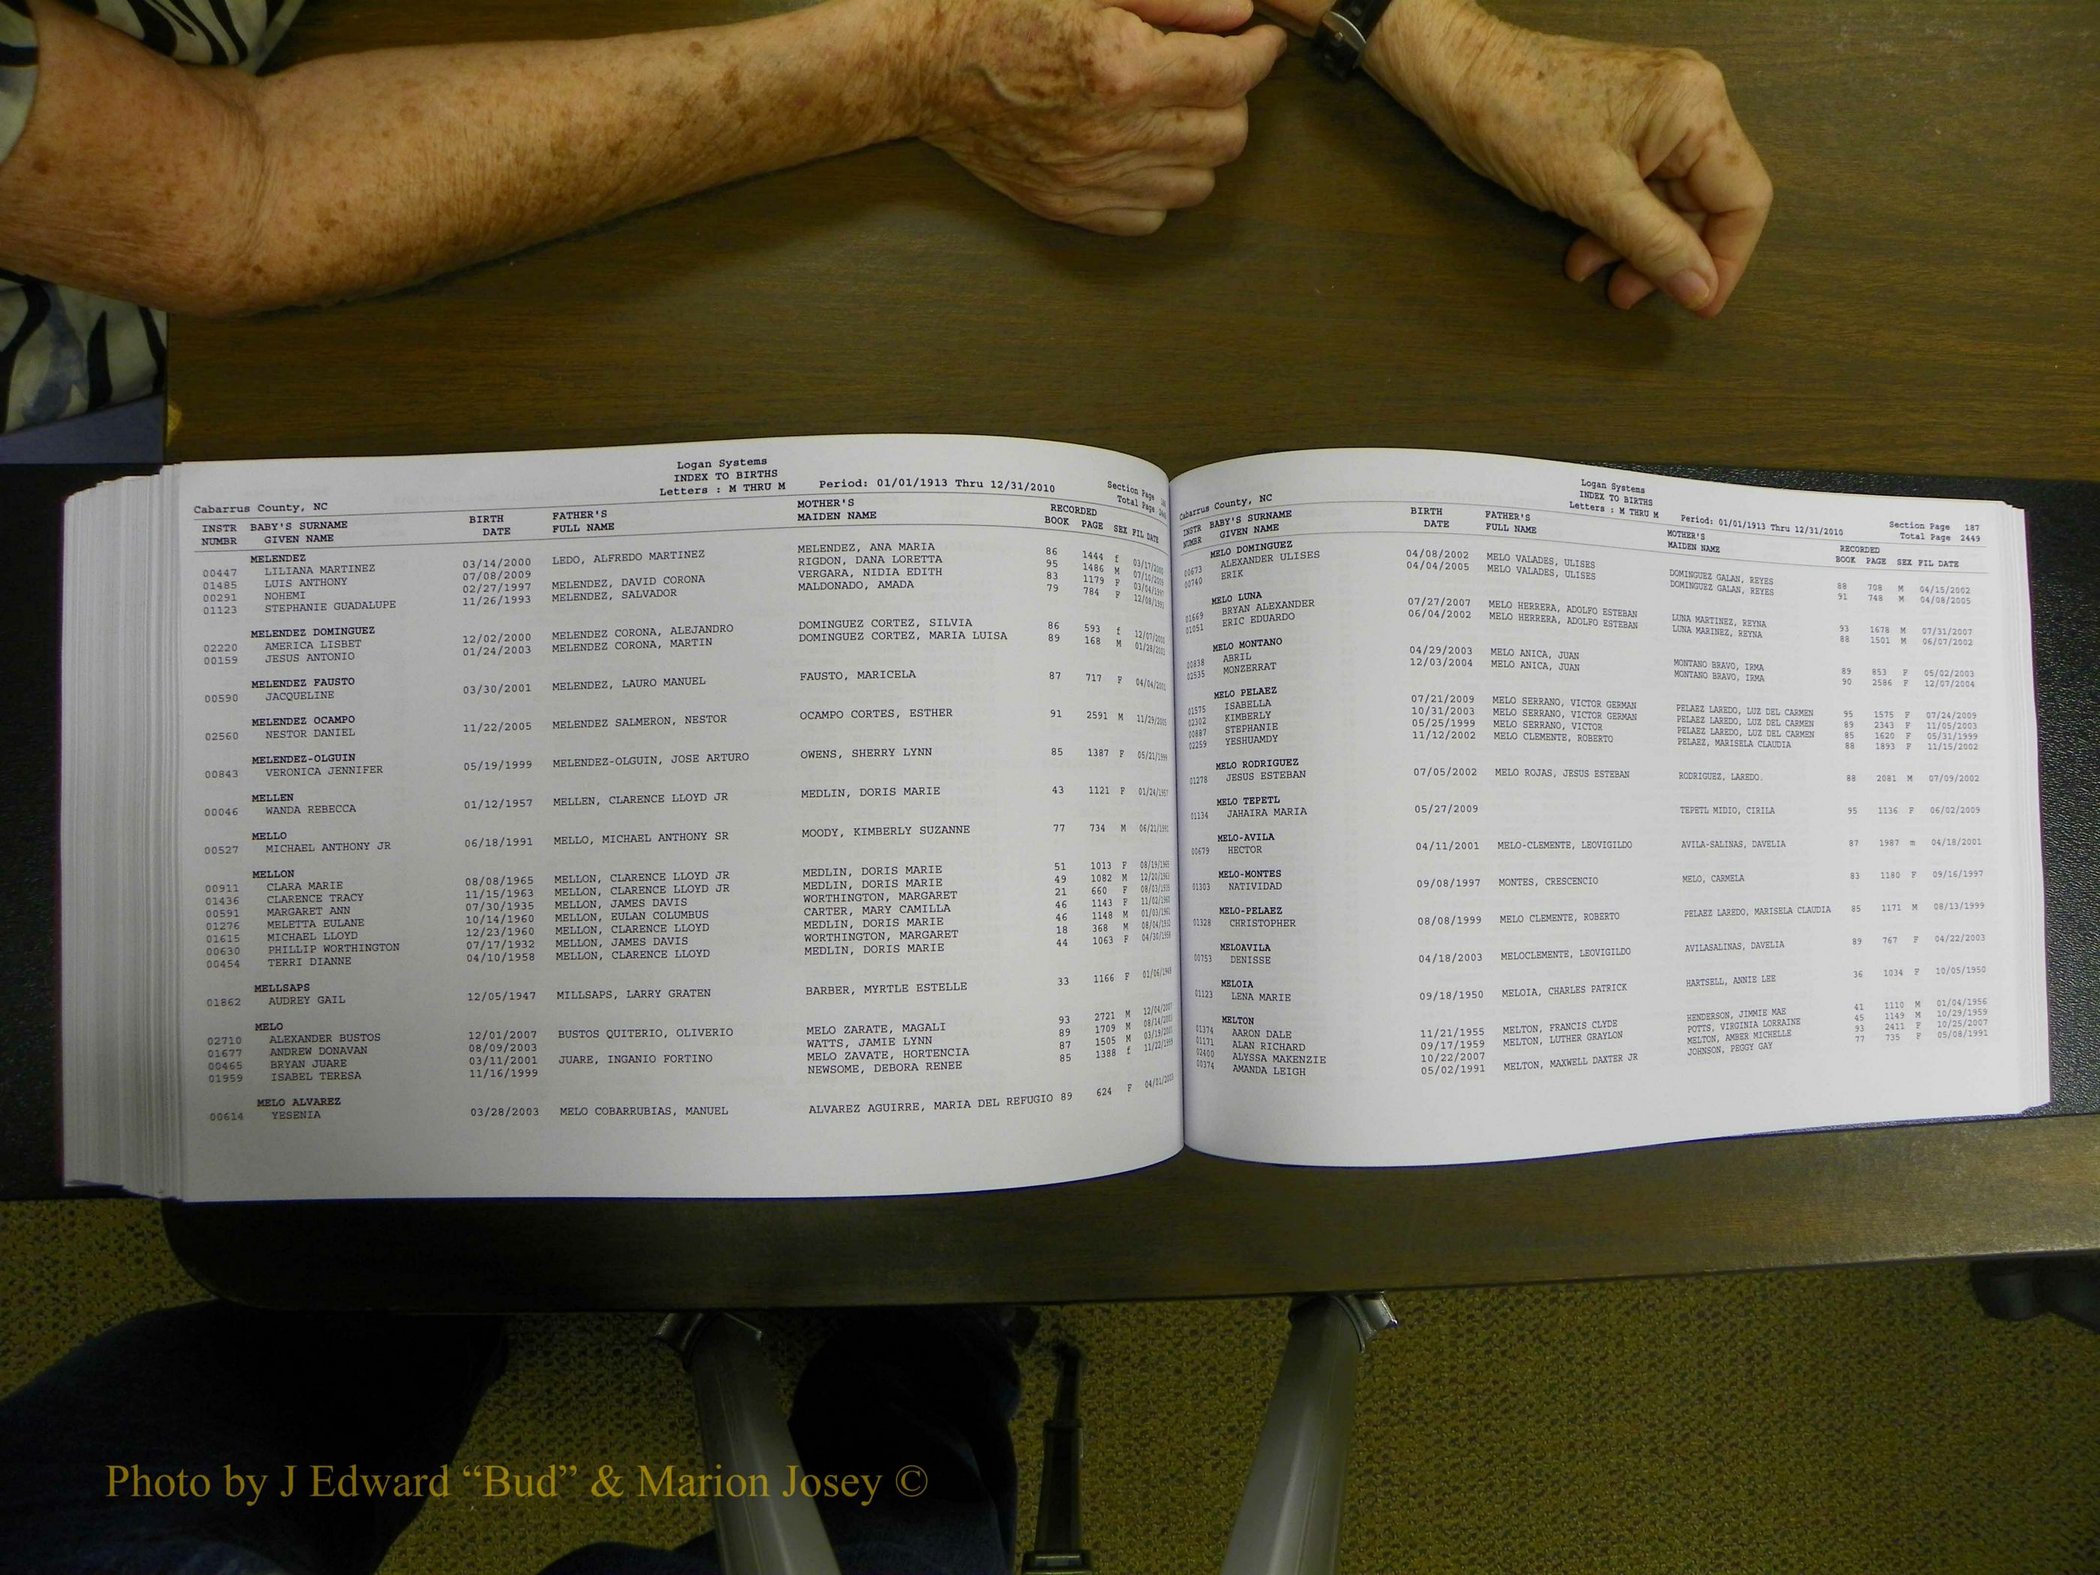 Logan Systems
INDEX TO BIRTHS
Letters : M THRU M Period: 01/01/1913 Thru 12/31/2010
Cabarrus County, NC Section Page
Total Page
INSTR BABY'S SURNAME BIRTH FATHER'S MOTHER'S RECORDED
NUMBR GIVEN NAME DATE FULL NAME MAIDEN NAME BOOK PAGE SEX FIL DATE
MELENDEZ
00447 LILIANA MARTINEZ 03/14/2000 LEDO, ALFREDO MARTINEZ MELENDEZ, ANA MARIA 86 1444 f 03/17/2000
01485 LUIS ANTHONY 07/08/2009 RIGDON, DANA LORETTA 95 1486 M 07/10/2009
00291 NOHEMI 02/27/1997 MELENDEZ, DAVID CORONA VERGARA, NIDIA EDITH 83 1179 F 03/04/1997
01123 STEPHANIE GUADALUPE 11/26/1993 MELENDEZ, SALVADOR MALDONADO, AMADA 79 784 F 12/08/1993
MELENDEZ DOMINGUEZ
02220 AMERICA LISBET 12/02/2000 MELENDEZ CORONA, ALEJANDRO DOMINGUEZ CORTEZ, SILVIA 86 593 f 12/07/2000
00159 JESUS ANTONIO 01/24/2003 MELENDEZ CORONA, MARTIN DOMINGUEZ CORTEZ, MARIA LUISA 89 168 M 01/28/2003
MELENDEZ FAUSTO
00590 JACQUELINE 03/30/2001 MELENDEZ, LAURO MANUEL FAUSTO, MARICELA 87 717 F 04/04/2001
MELENDEZ OCAMPO
02560 NESTOR DANIEL 11/22/2005 MELENDEZ SALMERON, NESTOR OCAMPO CORTES, ESTHER 91 2591 M 11/29/2005
MELENDEZ-OLGUIN
00843 VERONICA JENNIFER 05/19/1999 MELENDEZ-OLGUIN, JOSE ARTURO OWENS, SHERRY LYNN 85 1387 F 05/21/1999
MELLEN
00046 WANDA REBECCA 01/12/1957 MELLEN, CLARENCE LLOYD JR MEDLIN, DORIS MARIE 43 1121 F 01/24/1957
MELLO
00527 MICHAEL ANTHONY JR 06/18/1991 MELLO, MICHAEL ANTHONY SR MOODY, KIMBERLY SUZANNE 77 734 M 06/21/1991
MELLON
00911 CLARA MARIE 08/08/1965 MELLON, CLARENCE LLOYD JR MEDLIN, DORIS MARIE 51 1013 F 08/19/1965
01436 CLARENCE TRACY 11/15/1963 MELLON, CLARENCE LLOYD JR MEDLIN, DORIS MARIE 49 1082 M 12/20/1963
00591 MARGARET ANN 07/30/1935 MELLON, JAMES DAVIS WORTHINGTON, MARGARET 21 660 F 08/03/1935
01276 MELETTA EULANE 10/14/1960 MELLON, EULAN COLUMBUS CARTER, MARY CAMILLA 46 1143 F 11/02/1960
01615 MICHAEL LLOYD 12/23/1960 MELLON, CLARENCE LLOYD MEDLIN, DORIS MARIE 46 1148 M 01/03/1961
00630 PHILLIP WORTHINGTON 07/17/1932 MELLON, JAMES DAVIS WORTHINGTON, MARGARET 18 368 M 08/04/1932
00454 TERRI DIANNE 04/10/1958 MELLON, CLARENCE LLOYD MEDLIN, DORIS MARIE 44 1063 F 04/30/1958
MELLSAPS
01862 AUDREY GAIL 12/05/1947 MILLSAPS, LARRY GRATEN BARBER, MYRTLE ESTELLE 33 1166 F 01/06/1948
MELO
02710 ALEXANDER BUSTOS 12/01/2007 BUSTOS QUITERIO, OLIVERIO MELO ZARATE, MAGALI 93 2721 M 12/04/2007
01677 ANDREW DONAVAN 08/09/2003 WATTS, JAMIE LYNN 89 1709 M 08/14/2003
00465 BRYAN JUARE 03/11/2001 JUARE, INGANIO FORTINO MELO ZAVATE, HORTENCIA 87 1505 M 03/19/2001
01959 ISABEL TERESA 11/16/1999 NEWSOME, DEBORA RENEE 85 1388 f 11/22/1999
MELO ALVAREZ
00614 YESENIA 03/28/2003 MELO COBARRUBIAS, MANUEL ALVAREZ AGUIRRE, MARIA DEL REFUGIO 89 624 F 04/01/2003
Logan Systems
INDEX TO BIRTHS
Letters : M THRU M Period: 01/01/1913 Thru 12/31/2010
Cabarrus County, NC Section Page 187
Total Page 2449
INSTR BABY'S SURNAME BIRTH FATHER'S MOTHER'S RECORDED
NUMBR GIVEN NAME DATE FULL NAME MAIDEN NAME BOOK PAGE SEX FIL DATE
MELO DOMINGUEZ
00673 ALEXANDER ULISES 04/08/2002 MELO VALADES, ULISES DOMINGUEZ GALAN, REYES 88 708 M 04/15/2002
00740 ERIK 04/04/2005 MELO VALADES, ULISES DOMINGUEZ GALAN, REYES 91 748 M 04/08/2005
MELO LUNA
01669 BRYAN ALEXANDER 07/27/2007 MELO HERRERA, ADOLFO ESTEBAN LUNA MARTINEZ, REYNA 93 1678 M 07/31/2007
01051 ERIC EDUARDO 06/04/2002 MELO HERRERA, ADOLFO ESTEBAN LUNA MARINEZ, REYNA 88 1501 M 06/07/2002
MELO MONTANO
00838 ABRIL 04/29/2003 MELO ANICA, JUAN MONTANO BRAVO, IRMA 89 853 F 05/02/2003
02535 MONZERRAT 12/03/2004 MELO ANICA, JUAN MONTANO BRAVO, IRMA 90 2586 F 12/07/2004
MELO PELAEZ
01575 ISABELLA 07/21/2009 MELO SERRANO, VICTOR GERMAN PELAEZ LAREDO, LUZ DEL CARMEN 95 1575 F 07/24/2009
02302 KIMBERLY 10/31/2003 MELO SERRANO, VICTOR GERMAN PELAEZ LAREDO, LUZ DEL CARMEN 89 2343 F 11/05/2003
00887 STEPHANIE 05/25/1999 MELO SERRANO, VICTOR PELAEZ LAREDO, LUZ DEL CARMEN 85 1620 F 05/31/1999
02259 YESHUAMDY 11/12/2002 MELO CLEMENTE, ROBERTO PELAEZ, MARISELA CLAUDIA 88 1893 F 11/15/2002
MELO RODRIGUEZ
01278 JESUS ESTEBAN 07/05/2002 MELO ROJAS, JESUS ESTEBAN RODRIGUEZ, LAREDO. 88 2081 M 07/09/2002
MELO TEPETL
01134 JAHAIRA MARIA 05/27/2009 TEPETL MIDIO, CIRILA 95 1136 F 06/02/2009
MELO-AVILA
00679 HECTOR 04/11/2001 MELO-CLEMENTE, LEOVIGILDO AVILA-SALINAS, DAVELIA 87 1987 m 04/18/2001
MELO-MONTES
01303 NATIVIDAD 09/08/1997 MONTES, CRESCENCIO MELO, CARMELA 83 1180 F 09/16/1997
MELO-PELAEZ
01328 CHRISTOPHER 08/08/1999 MELO CLEMENTE, ROBERTO PELAEZ LAREDO, MARISELA CLAUDIA 85 1171 M 08/13/1999
MELOAVILA
00753 DENISSE 04/18/2003 MELOCLEMENTE, LEOVIGILDO AVILASALINAS, DAVELIA 89 767 F 04/22/2003
MELOIA
01123 LENA MARIE 09/18/1950 MELOIA, CHARLES PATRICK HARTSELL, ANNIE LEE 36 1034 F 10/05/1950
MELTON
01374 AARON DALE 11/21/1955 MELTON, FRANCIS CLYDE HENDERSON, JIMMIE MAE 41 1110 M 01/04/1956
01171 ALAN RICHARD 09/17/1959 MELTON, LUTHER GRAYLON POTTS, VIRGINIA LORRAINE 45 1149 M 10/29/1959
02400 ALYSSA MAKENZIE 10/22/2007 MELTON, AMBER MICHELLE 93 2411 F 10/25/2007
00374 AMANDA LEIGH 05/02/1991 MELTON, MAXWELL DAXTER JR JOHNSON, PEGGY GAY 77 735 F 05/08/1991
Photo by J Edward “Bud” & Marion Josey ©